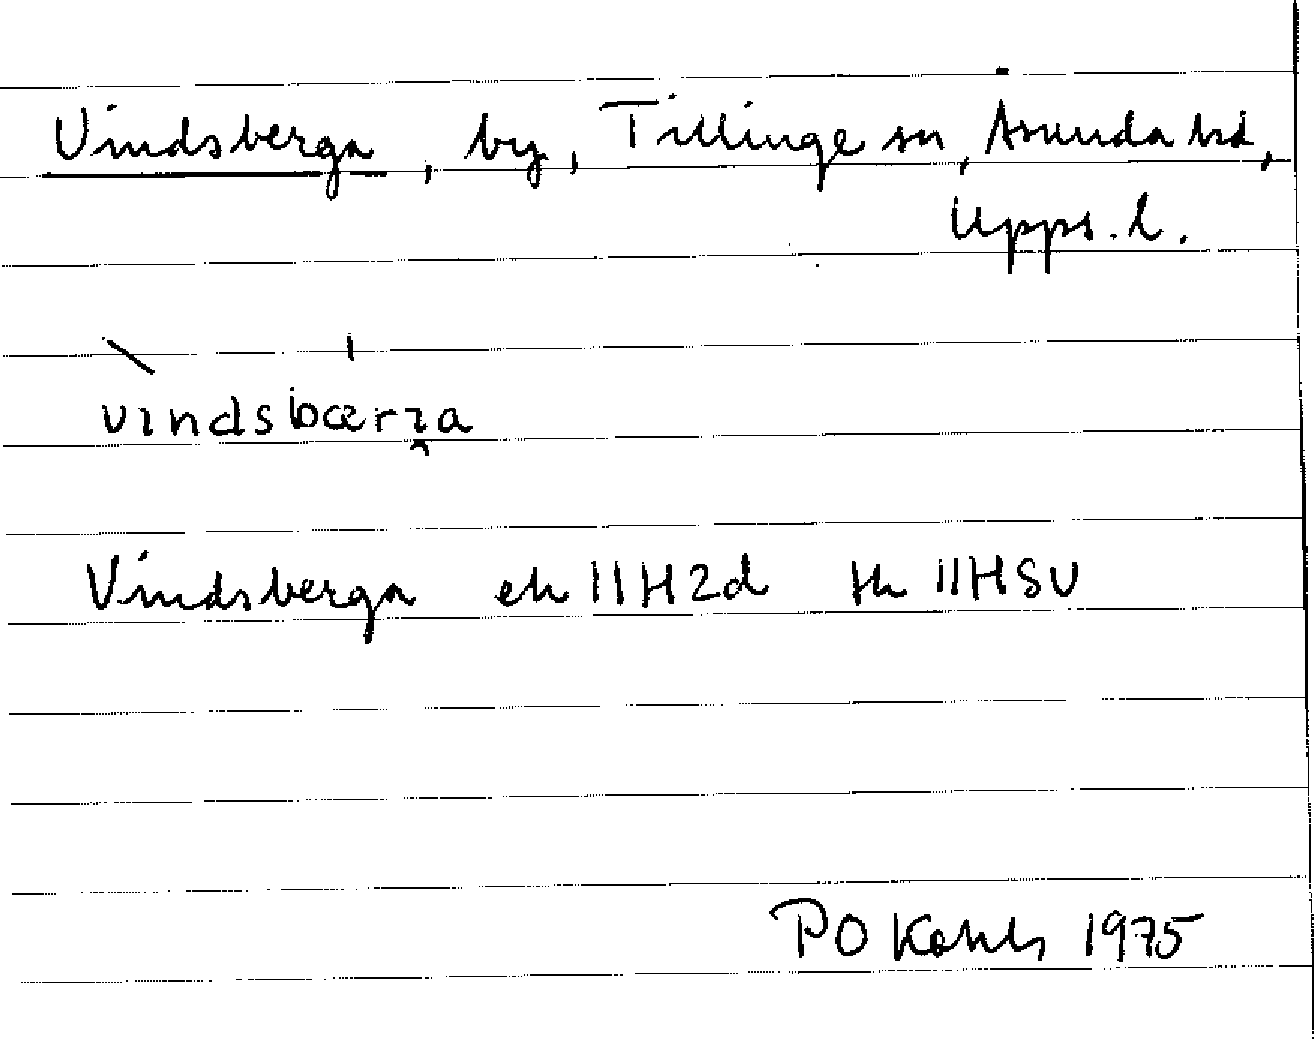 Vindsberga, by, Tillinge sn, Åsunda hd,
Upps. l.
vındsbærɜa
Vindsberga ek 11H2d tk 11HSV
P O 1975